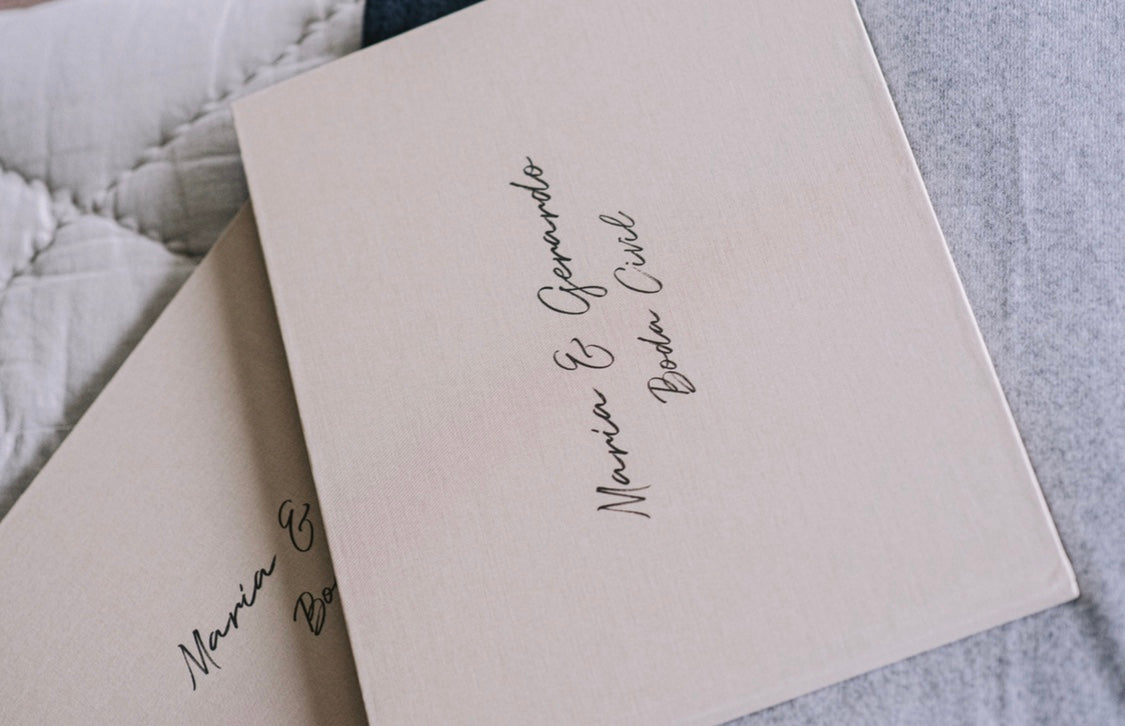 Maria & Gerardo
Boda Civil
Maria &
Bo